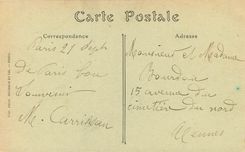 Carte Postale
Correspondance
Adresse
Paris 21 Sept
de Paris bon
souvenir
M.
Monsieur et Madame
15 avenue du
cimetière du nord
Rennes